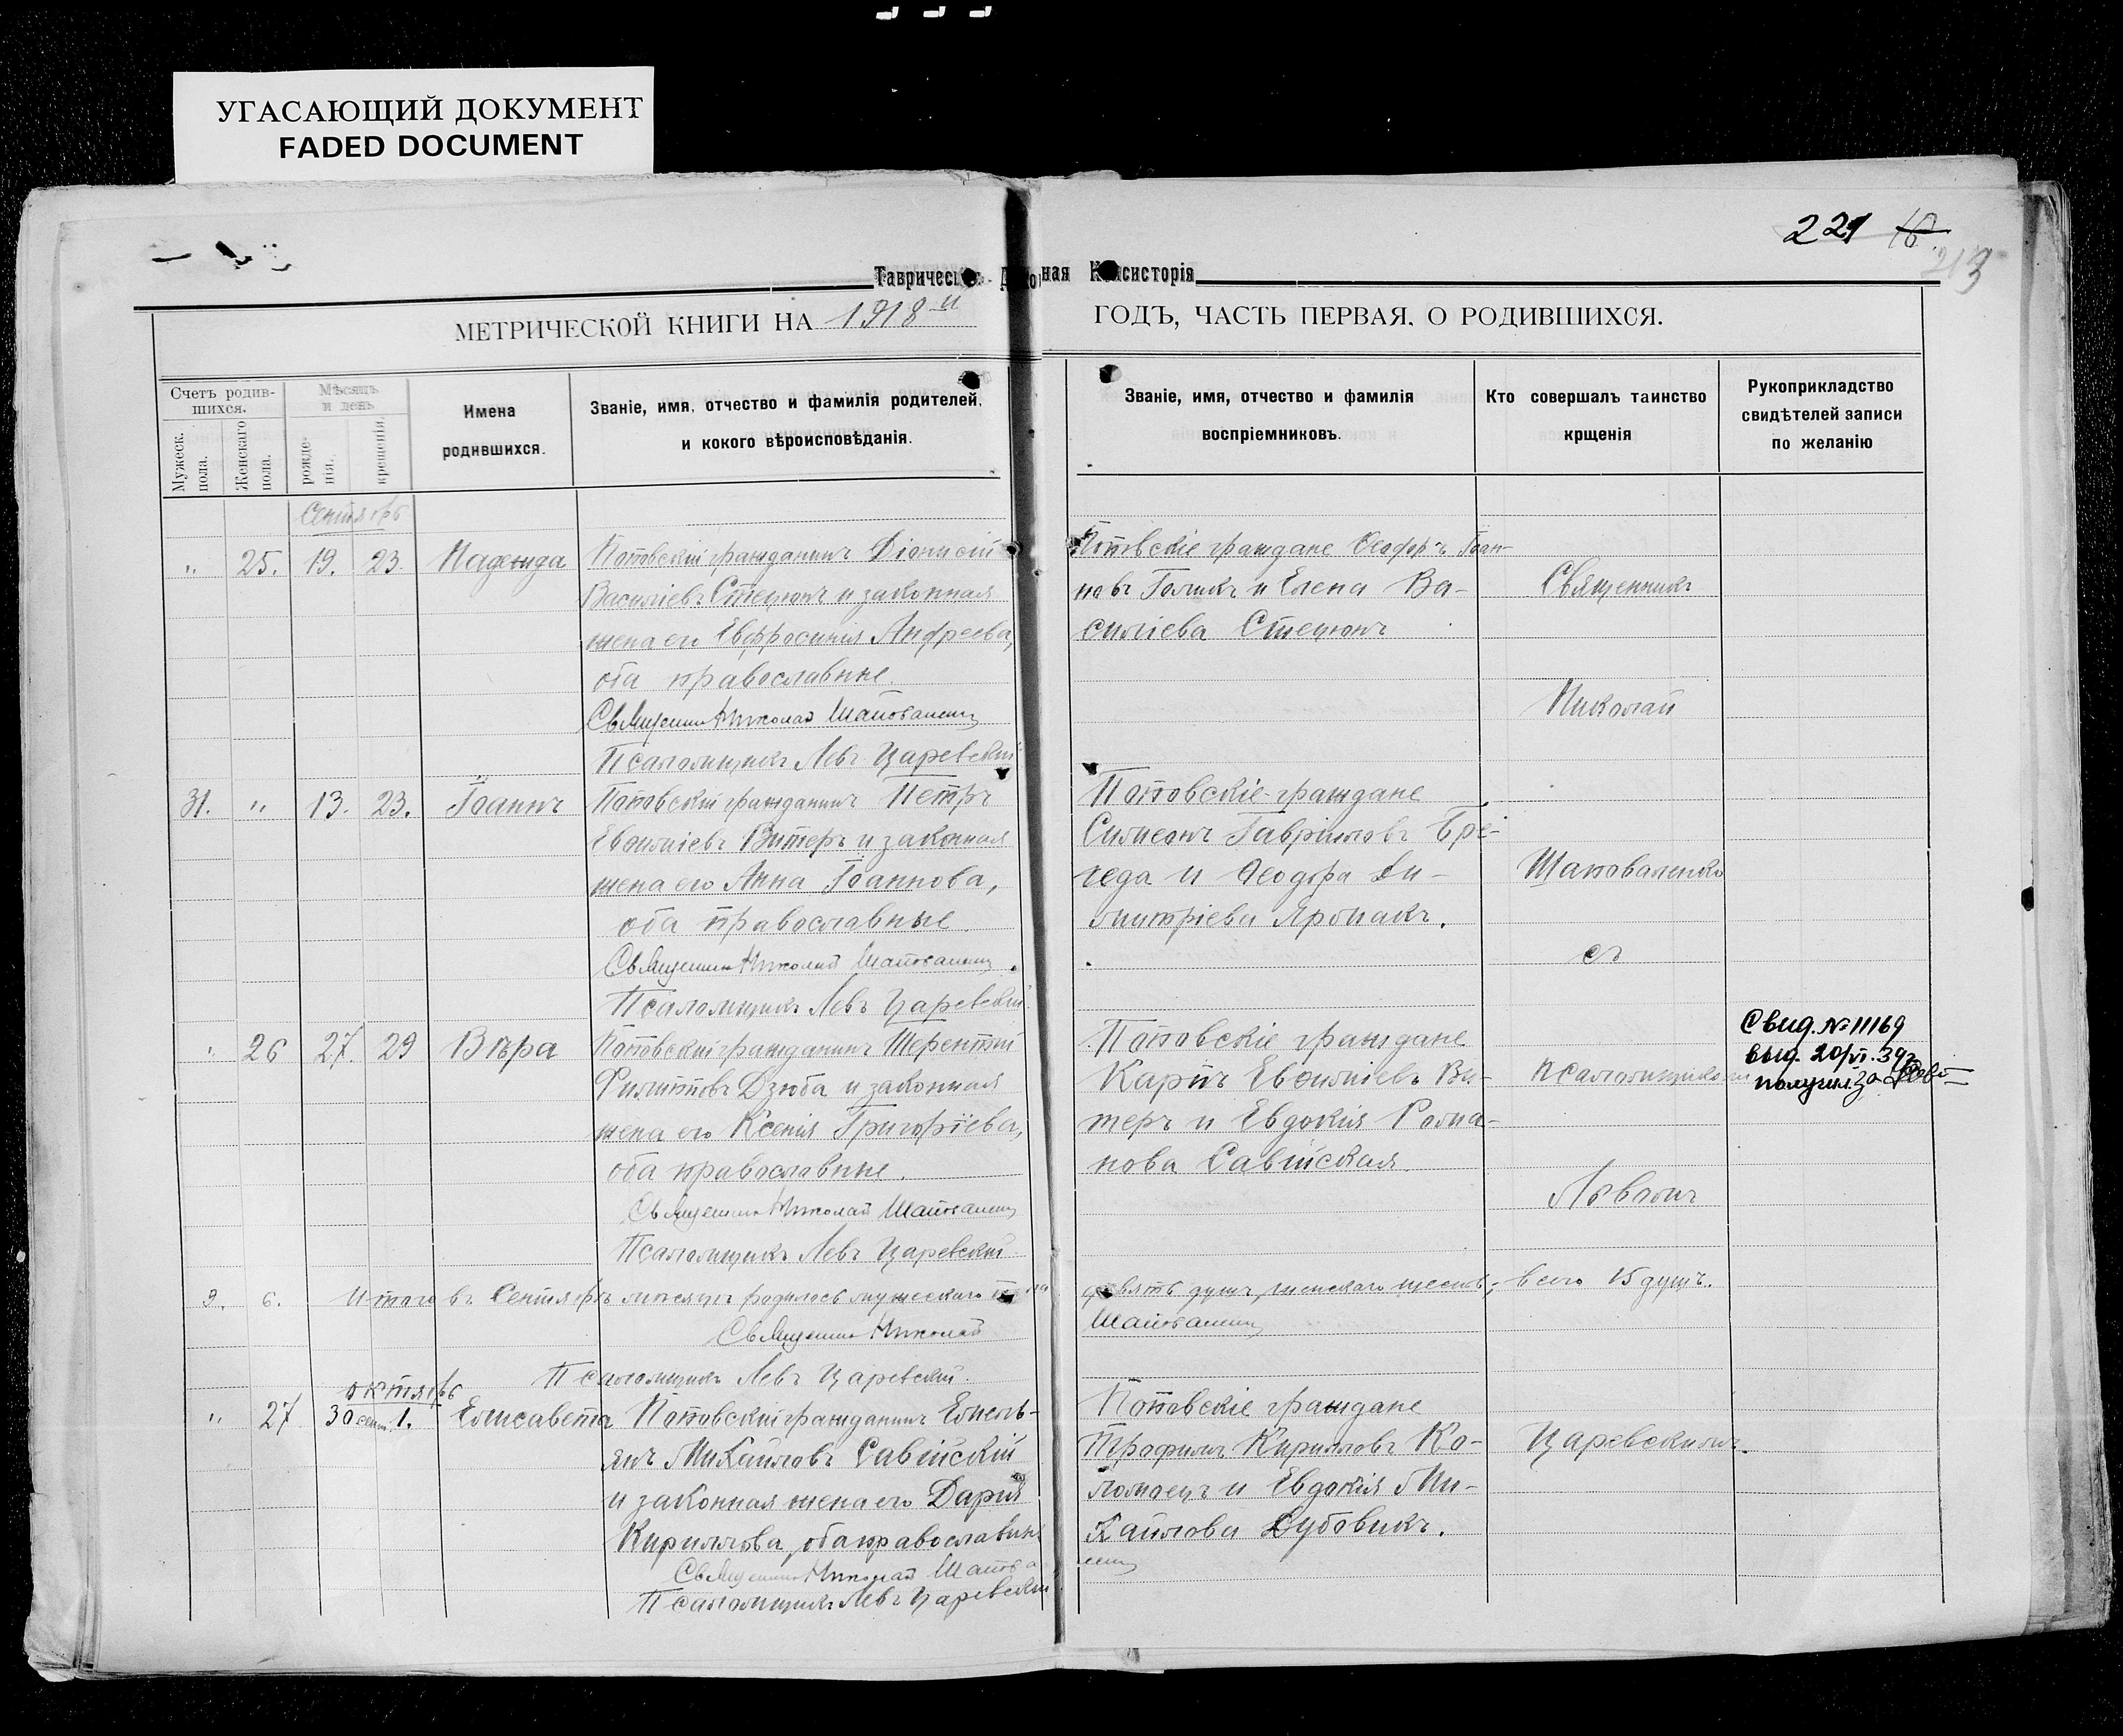 УГАСАЮЩИЙ ДОКУМЕНТ
FADED DOCUMENT
221 16
213
Таврическ. Духовная Консисторія
МЕТРИЧЕСКОЙ КНИГИ НА 1918 й ГОДЪ, ЧАСТЬ ПЕРВАЯ, О РОДИВШИХСЯ.
Счетъ родив-
шихся.
Мужеск.
пола.
Женскаго
пола.
Мѣсяцъ
и день
рожде-
нія.
крещенія
Имена
родившихся.
Званіе, имя, отчество и фамилія родителей,
и кокого вѣроисповѣданія.
Званіе, имя, отчество и фамилія
воспріемниковъ.
Кто совершалъ таинство
крщенія
Рукоприкладство
свидѣтелей записи
по желанію
Сентябрь
" 25. 19. 23. Надежда
Поповскій гражданинъ Діонисій
Василіевъ Стецюкъ и законная
жена его Евфросинія Андреева,
оба православные.
Священникъ Николай Шаповаленко
Псаломщикъ Левъ Царевскій
Поповскіе граждане Ѳеодоръ Іоан-
новъ Голикъ и Елена Ва-
силіева Стецюкъ
31. " 13. 23. Іоаннъ
Поповскій гражданинъ Петръ
Евѳиміевъ Витеръ и законная
жена его Анна Іоаннова,
оба православные.
Священникъ Николай Шаповаленко
Псаломщикъ Левъ Царевскій.
Поповскіе граждане
Симеонъ Гавріиловъ Бре-
геда и Ѳеодора Ди-
митріева Яромакъ.
" 26 27. 29 Вѣра
Поповскій гражданинъ Терентій
Филипповъ Дзюба и законная
жена его Ксенія Григоріева,
оба православные.
Священникъ Николай Шаповаленко
Псаломщикъ Левъ Царевскій
Поповскіе граждане
Карпъ Евѳиміевъ Ви-
теръ и Евдокія Рома-
нова Савійская.
Священникъ
Николай
Шаповаленко
съ
псаломщикомъ
Львомъ
Царевскимъ.
Свид. № 11169
выд. 20/VI. 39г
получил за
9. 6. Итого въ Сентябрѣ мѣсяцѣ родилось мужескаго пола девять душъ, женскаго шесть, всего 15 душъ.
Священникъ Николай Шаповаленко
Псаломщикъ Левъ Царевскій.
октябрь
" 27 30 сент. 1. Елисавета
Поповскій гражданинъ Емель-
янъ Михайловъ Савійскій
и законная жена его Дарія
Кириллова, оба православные
Священникъ Николай Шаповаленко
Псаломщикъ Левъ Царевскій
Поповскіе граждане
Трофимъ Кирилловъ Ко-
ломоецъ и Евдокія Ми-
хайлова Дубовикъ.